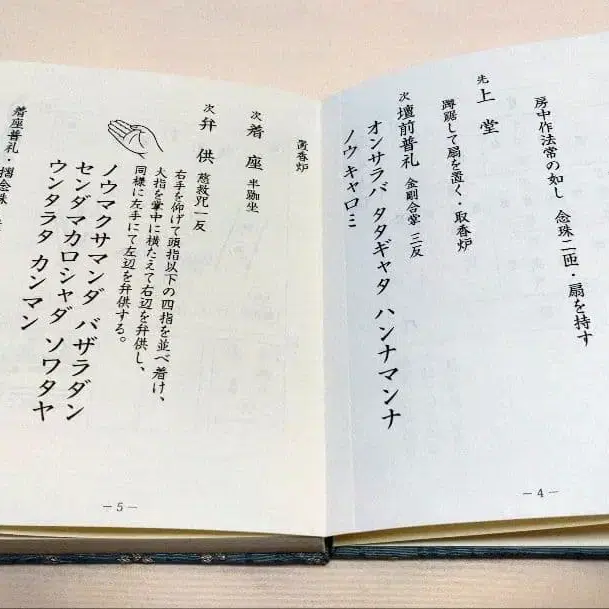 房中作法常の如し 念珠二匝・扇を持す
先 上堂
蹲踞して扇を置く・取香炉
次 壇前普礼 金剛合掌 三反
オンサラバ タタギャタ ハンナマンナ
ノウキャロミ
－4－
置香炉
次 着座 半跏坐
次 弁供 慈救咒一反
右手を仰げて頭指以下の四指を並べ着け、
大指を掌中に横たえて右辺を弁供し、
同様に左手にて左辺を弁供する。
ノウマクサマンダ バザラダン
センダマカロシャダ ソワタヤ
ウンタラタ カンマン
着座普礼・摺念珠
－5－